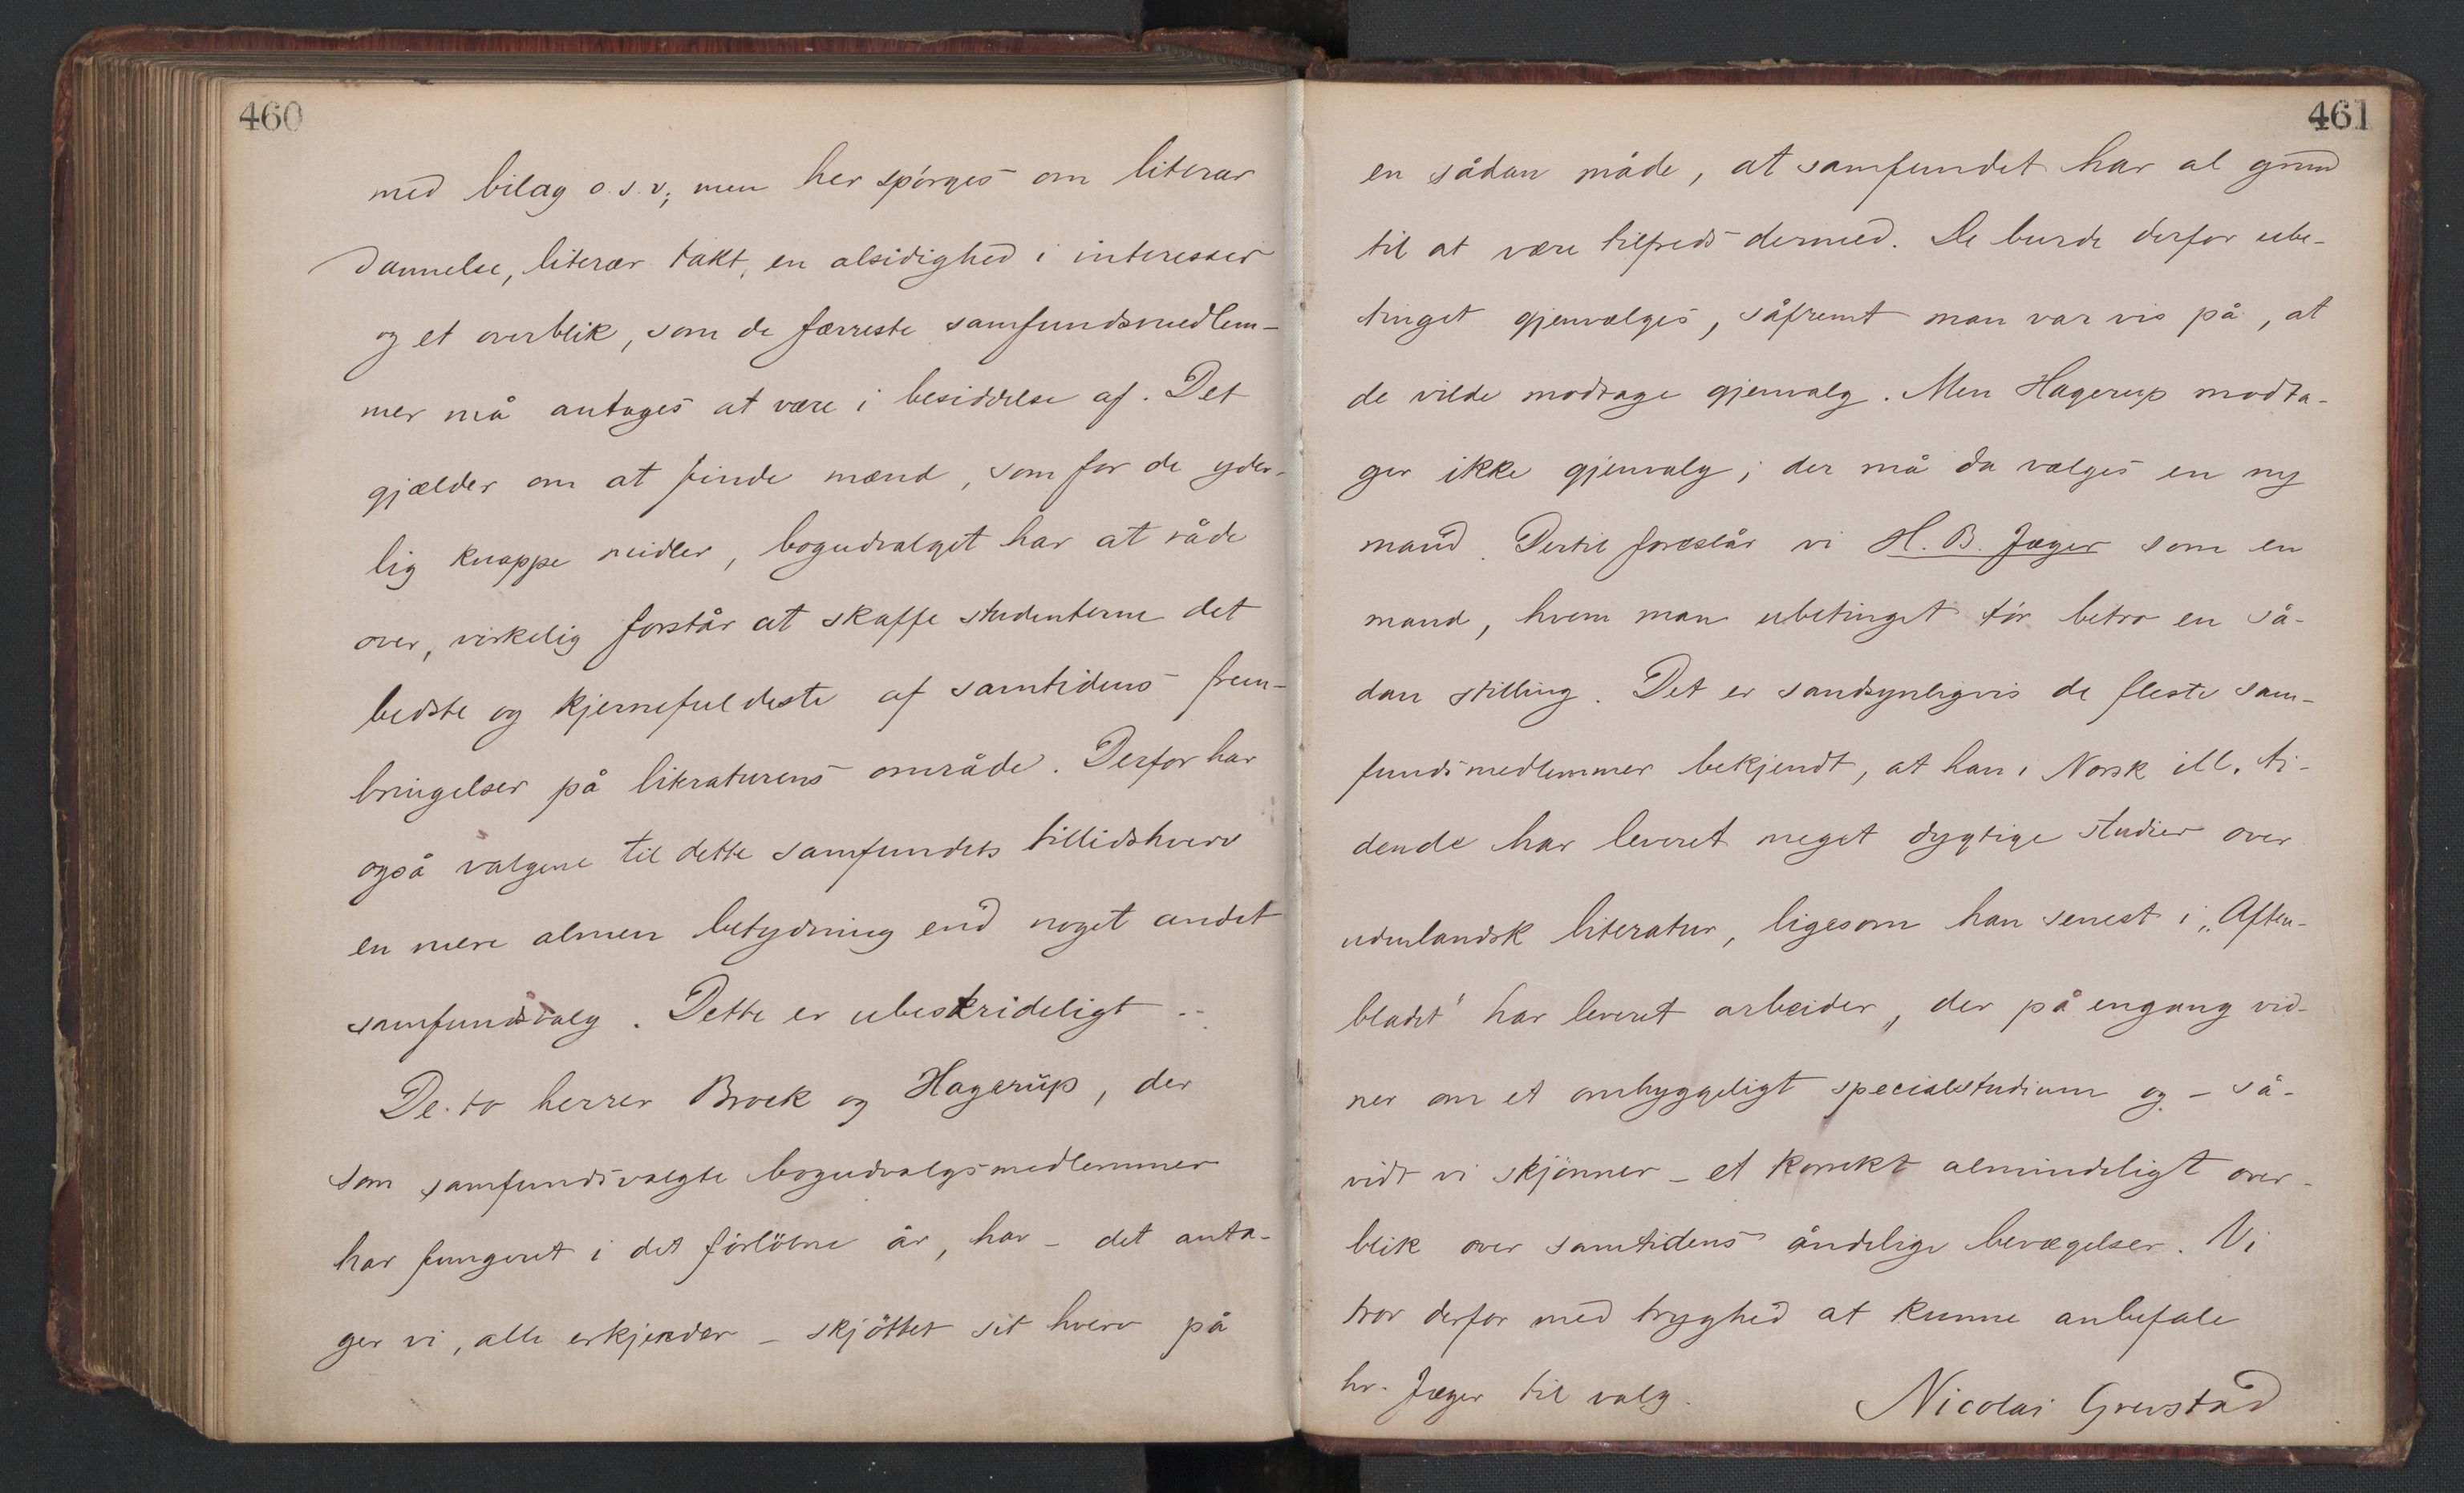 460
med bilag o.s.v; men her spörges om literær
dannelse, literær takt, en alsidighed i interesser
og et overblik, som de færreste samfundsmedlem-
mer må antages at være i besiddelse af. Det
gjælder om at finde mænd, som for de yder-
lig knappe midler, bogudvalget har at råde
over, virkelig forstår at skaffe studenterne det
bedste og kjernefuldeste af samtidens frem-
bringelser på literaturens område. Derfor har
også valgene til dette samfundets tillidshverv
en mere almen betydning end noget andet
samfundsvalg. Dette er ubeskrideligt –
De to herrer Brock og Hagerup, der
som samfundsvalgte bogudvalgsmedlemmer
har fungeret i det förlöbne år, har – det anta-
ger vi, alle erkjender – skjöttet sit hverv på
461
en sådan måde, at samfundet har al grund
til at være tilfreds dermed. De burde derfor ube-
tinget gjenvælges, såfremt man var vis på, at
de vilde modtage gjenvalg. Men Hagerup modta-
ger ikke gjenvalg; der må da vælges en ny
mand. Dertil foreslår vi H. B. Jæger som en
mand, hvem man ubetinget tör betro en så-
dan stilling. Det er sandsynligvis de fleste sam-
fundsmedlemmer bekjendt, at han i Norsk ill. ti-
dende har leveret meget dygtige studier over
udenlandsk literatur, ligesom han senest i „Aften-
bladet" har leveret arbeider, der på engang vid-
ner om et omhyggeligt specialstudium og – så-
vidt vi skjönner – et korrekt almindeligt over-
blik over samtidens åndelige bevægelser. Vi
tror derfor med tryghed at kunne anbefale
hr. Jæger til valg. Nicolai Grevstad